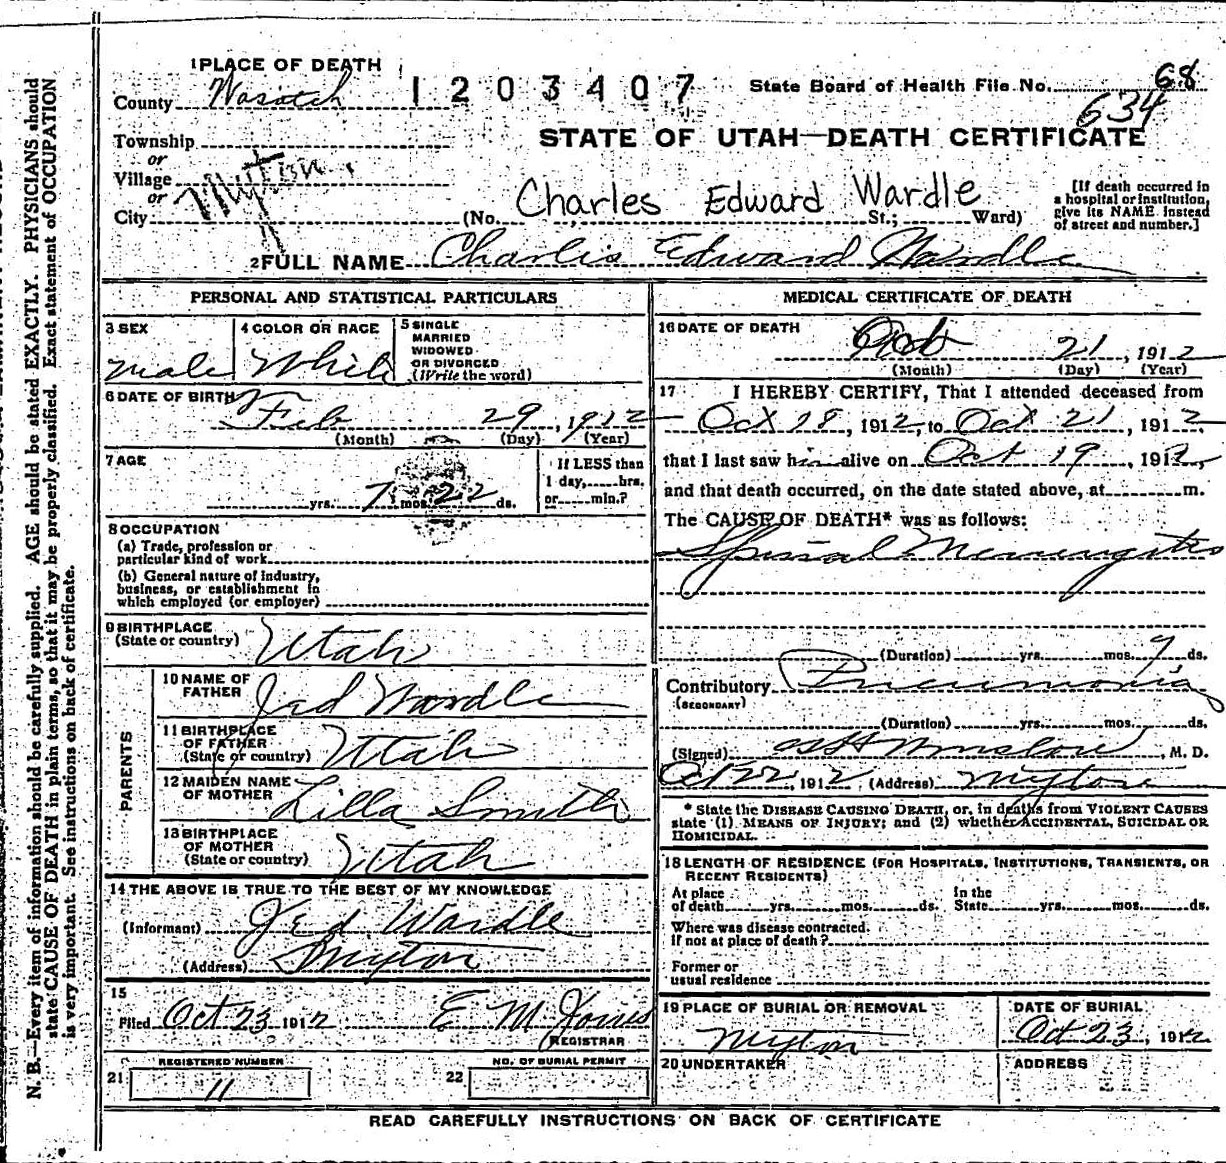 1 PLACE OF DEATH
County Wasatch
1203407
State Board of Health File No. 68
634
Township
or
Village
or
City
Myton.
STATE OF UTAH—DEATH CERTIFICATE
(No. St.; Ward)
Charles Edward Wardle
[If death occurred in
a hospital or institution,
give its NAME instead
of street and number.]
2 FULL NAME Charlis Edward Wardle
PERSONAL AND STATISTICAL PARTICULARS
3 SEX
male
4 COLOR OR RACE
White
5 SINGLE
MARRIED
WIDOWED
OR DIVORCED
(Write the word)
6 DATE OF BIRTH
Feb 29, 1912
(Month) (Day) (Year)
7 AGE
yrs. 7 mos. 22 ds.
If LESS than
1 day, hrs.
or min.?
8 OCCUPATION
(a) Trade, profession or
particular kind of work
(b) General nature of industry,
business, or establishment in
which employed (or employer)
9 BIRTHPLACE
(State or country)
Utah
PARENTS
10 NAME OF
FATHER
Jed Wardle
11 BIRTHPLACE
OF FATHER
(State or country)
Utah
12 MAIDEN NAME
OF MOTHER
Lilla Smith
13 BIRTHPLACE
OF MOTHER
(State or country)
Utah
14 THE ABOVE IS TRUE TO THE BEST OF MY KNOWLEDGE
(Informant) Jed Wardle
(Address) Myton
15
Filed Oct 23 1912 E M Jones
REGISTRAR
REGISTERED NUMBER
21 11
NO. OF BURIAL PERMIT
22
MEDICAL CERTIFICATE OF DEATH
16 DATE OF DEATH
Oct 21, 1912
(Month) (Day) (Year)
17 I HEREBY CERTIFY, That I attended deceased from
Oct 18, 1912, to Oct 21, 1912,
that I last saw him alive on Oct 19, 1912,
and that death occurred, on the date stated above, at m.
The CAUSE OF DEATH* was as follows:
Spinal Meningites
(Duration) yrs. mos. 9 ds.
Contributory Pneumonia
(SECONDARY)
(Duration) yrs. mos. ds.
(Signed) Winslow, M. D.
Oct 22, 1912 (Address) Myton
* State the DISEASE CAUSING DEATH, or, in deaths from VIOLENT CAUSES
state (1) MEANS OF INJURY; and (2) whether ACCIDENTAL, SUICIDAL OR
HOMICIDAL.
18 LENGTH OF RESIDENCE (FOR HOSPITALS, INSTITUTIONS, TRANSIENTS, OR
RECENT RESIDENTS)
At place
of death yrs. mos. ds.
In the
State yrs. mos. ds.
Where was disease contracted,
If not at place of death?
Former or
usual residence
19 PLACE OF BURIAL OR REMOVAL
Myton
DATE OF BURIAL
Oct 23, 1912
20 UNDERTAKER
ADDRESS
READ CAREFULLY INSTRUCTIONS ON BACK OF CERTIFICATE
N. B.—Every item of information should be carefully supplied. AGE should be stated EXACTLY. PHYSICIANS should
state CAUSE OF DEATH in plain terms, so that it may be properly classified. Exact statement of OCCUPATION
is very important. See instructions on back of certificate.